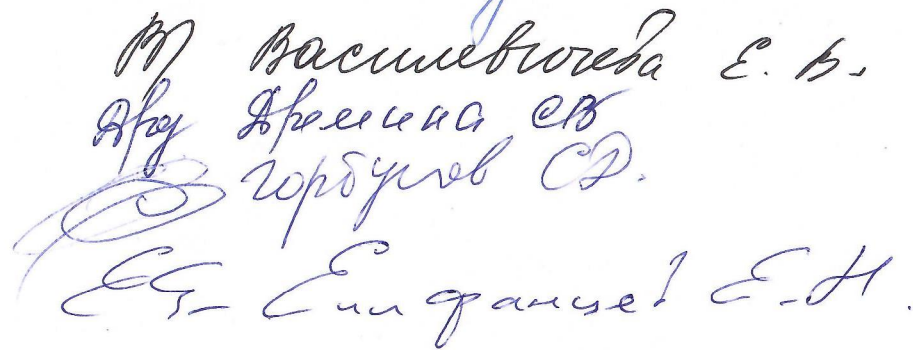 Василевичева Е. В.
Дремина СВ
Горбунов С.Д.
Епифанцев Е.Н.